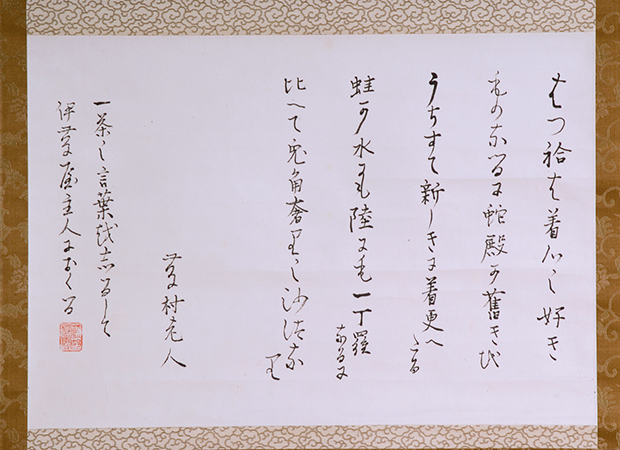 はつ袷は着心し好き
ものなるに蛇殿が舊きを
うちすて新しきに着更へたる
蛙が水にも陸にも一丁羅なるに
比へて兎角奢りし沙汰なり
藤村老人
一茶之言葉をしるして
伊藤屋主人におくる